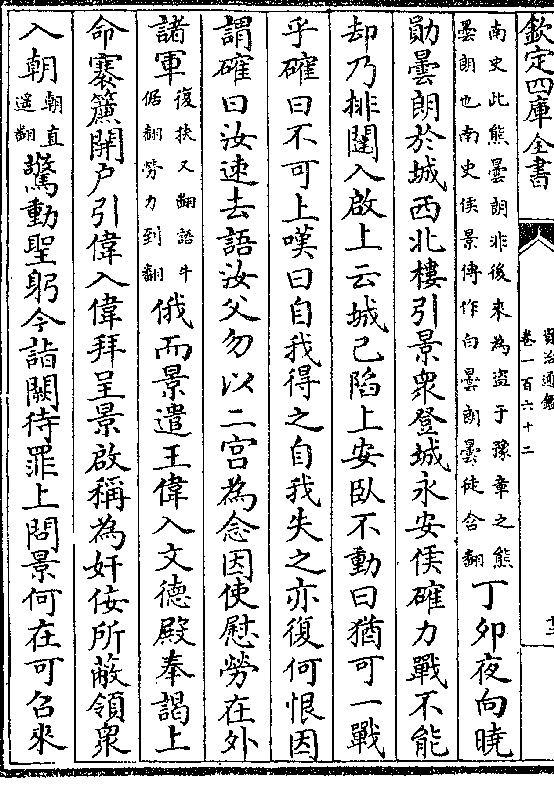 欽定四庫全書
資治通鑑
卷一百六十二
南史此熊曇朗非後來為盜于豫章之熊
曇朗也南史侯景傳作白曇朗曇徒含翻
丁卯夜向曉
勛曇朗於城西北樓引景衆登城永安侯確力戰不能
却乃排闥入啟上云城已陷上安卧不動曰猶可一戰
乎確曰不可上嘆曰自我得之自我失之亦復何恨因
謂確曰汝速去語汝父勿以二宫為念因使慰勞在外
諸軍
復扶又翻語牛
倨翻勞力到翻
俄而景遣王偉入文德殿奉謁上
命褰簾開户引偉入偉拜呈景啟稱為奸佞所蔽領衆
入朝
朝直
遥翻
驚動聖躬今詣闕待罪上問景何在可召來